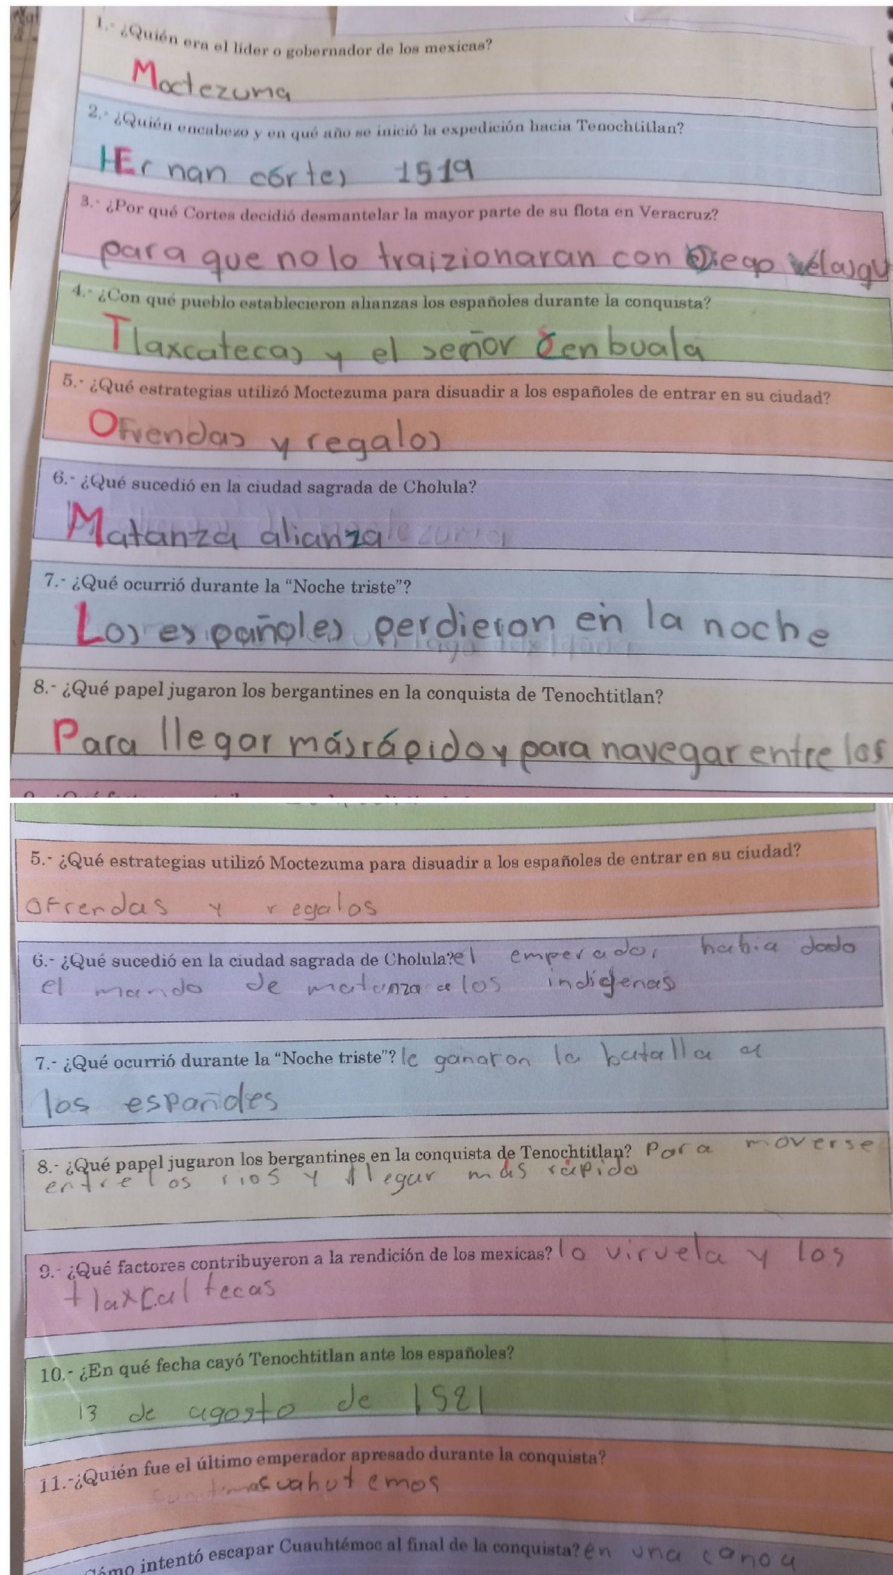 1.- ¿Quién era el líder o gobernador de los mexicas?
Moctezuma
2.- ¿Quién encabezo y en qué año se inició la expedición hacia Tenochtitlan?
HErnan córtes 1519
3.- ¿Por qué Cortes decidió desmantelar la mayor parte de su flota en Veracruz?
para que no lo traizionaran con Diego
4.- ¿Con qué pueblo establecieron alianzas los españoles durante la conquista?
Tlaxcatecas y el señor
5.- ¿Qué estrategias utilizó Moctezuma para disuadir a los españoles de entrar en su ciudad?
Ofrendas y regalos
6.- ¿Qué sucedió en la ciudad sagrada de Cholula?
Matanza alianza
7.- ¿Qué ocurrió durante la “Noche triste”?
Los españoles perdieron en la noche
8.- ¿Qué papel jugaron los bergantines en la conquista de Tenochtitlan?
Para llegar más rápido y para navegar entre los
5.- ¿Qué estrategias utilizó Moctezuma para disuadir a los españoles de entrar en su ciudad?
ofrendas y regalos
6.- ¿Qué sucedió en la ciudad sagrada de Cholula? el emperador habia dado
el mando de matanza a los indigenas
7.- ¿Qué ocurrió durante la “Noche triste”? le ganaron la batalla a
los españoles
8.- ¿Qué papel jugaron los bergantines en la conquista de Tenochtitlan? Para moverse
entre los rios y llegar más rápido
9.- ¿Qué factores contribuyeron a la rendición de los mexicas? la viruela y los
tlaxcaltecas
10.- ¿En qué fecha cayó Tenochtitlan ante los españoles?
13 de agosto de 1521
11.-¿Quién fue el último emperador apresado durante la conquista?
cuahutemos
intentó escapar Cuauhtémoc al final de la conquista? en una canoa